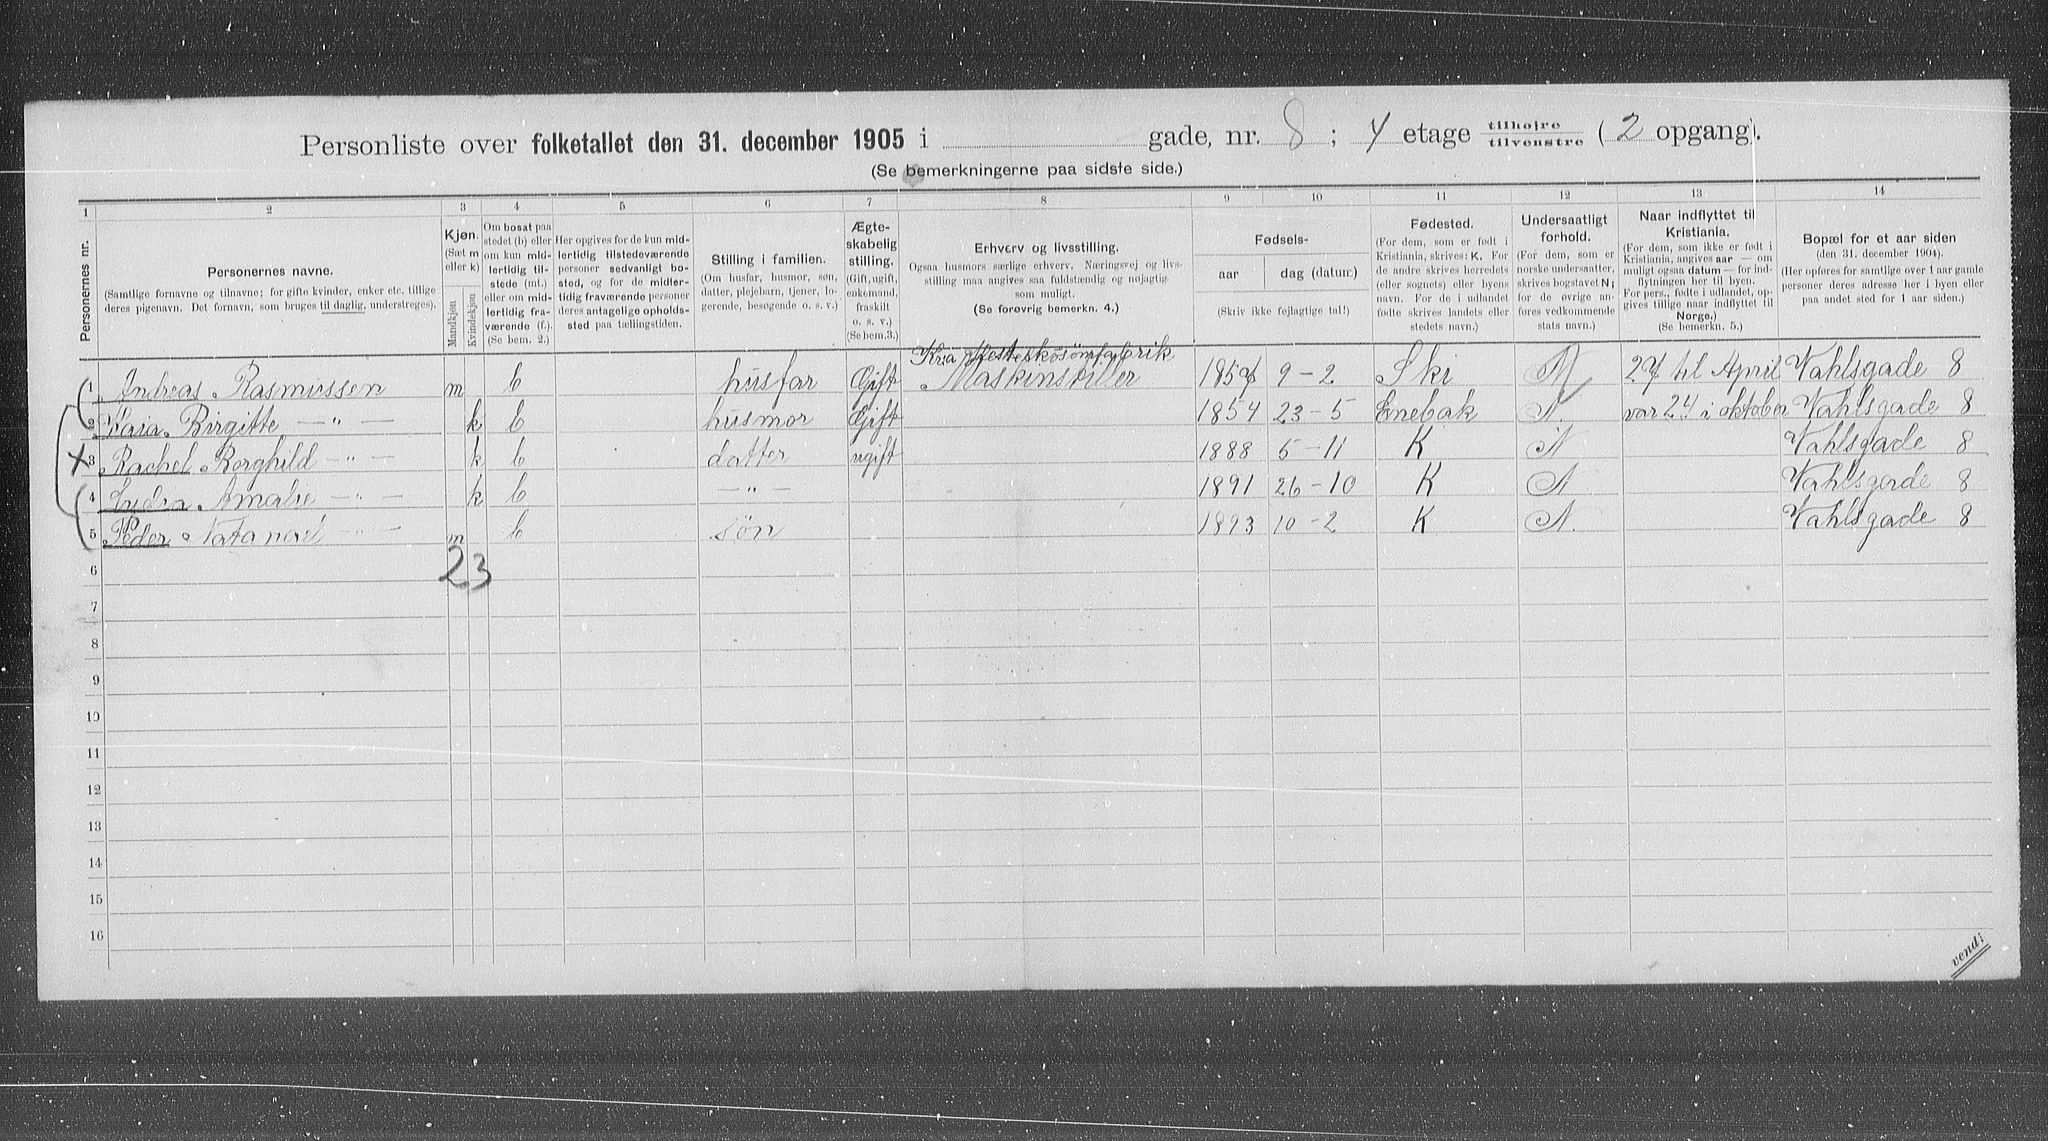 Personliste over folketallet den 31. december 1905 i gade, nr. 8 ; 4 etage tilhøjre / tilvenstre ( 2 opgang).
(Se bemerkningerne paa sidste side.)
1 2 3 4 5 6 7 8 9 10 11 12 13 14
Personernes nr.
Personernes navne.
(Samtlige fornavne og tilnavne; for gifte kvinder, enker etc. tillige deres pigenavn. Det fornavn, som bruges til daglig, understreges).
Kjøn.
(Sæt m eller k)
Mandkjøn
Kvindekjøn
Om bosat paa stedet (b) eller om kun midlertidig tilstede (mt.) eller om midlertidig fraværende (f.). (Se bem. 2.)
Her opgives for de kun midlertidig tilstedeværende personer sedvanligt bosted, og for de midlertidig fraværende personer deres antagelige opholdssted paa tællingstiden.
Stilling i familien.
(Om husfar, husmor, søn, datter, plejebarn, tjener, logerende, besøgende o. s. v.)
Ægteskabelig stilling.
(Gift, ugift, enkemand, fraskilt o. s. v.) (Se bem.3.)
Erhverv og livsstilling.
Ogsaa husmors særlige erhverv. Næringsvej og livsstilling maa angives saa fuldstændig og nøjagtig som muligt.
(Se forøvrig bemerkn. 4.)
Fødsels-
aar
dag (datum).
(Skriv ikke fejlagtige tal!)
Fødested.
(For dem, som er født i Kristiania, skrives: K. For de andre skrives herredets (eller sognets) eller byens navn. For de i udlandet fødte skrives landets eller stedets navn.)
Undersaatligt forhold.
(For dem, som er norske undersaatter, skrives bogstavet N; for de øvrige anføres vedkommende stats navn.)
Naar indflyttet til Kristiania.
(For dem, som ikke er født i Kristiania, angives aar — om muligt ogsaa datum — for indflytningen her til byen. For pers., fødte i udlandet, opgives tillige naar indflyttet til Norge.)
(Se bemerkn. 5.)
Bopæl for et aar siden
(den 31. december 1904).
(Her opføres for samtlige over 1 aar gamle personer deres adresse her i byen eller paa andet sted for 1 aar siden.)
Kria Hesteskosømfabrik
1 Andreas Rasmussen m b husfar Gift Maskinstiller 1857 9-2 Ski N 27 til April Vahlsgade 8
2 Birgitte —"— k b husmor Gift 1854 23-5 Enebak N. var 24 i oktober Vahlsgade 8
X 3 Rachel Borghild —"— k b datter ugift 1888 5-11 K N Vahlsgade 8
4 Lydia Amalie —"— k b —"— 1891 26-10 K N Vahlsgade 8
5 Peder Natanael —"— m b søn 1893 10-2 K N. Vahlsgade 8
6 2 3
7
8
9
10
11
12
13
14
15
16
vend!